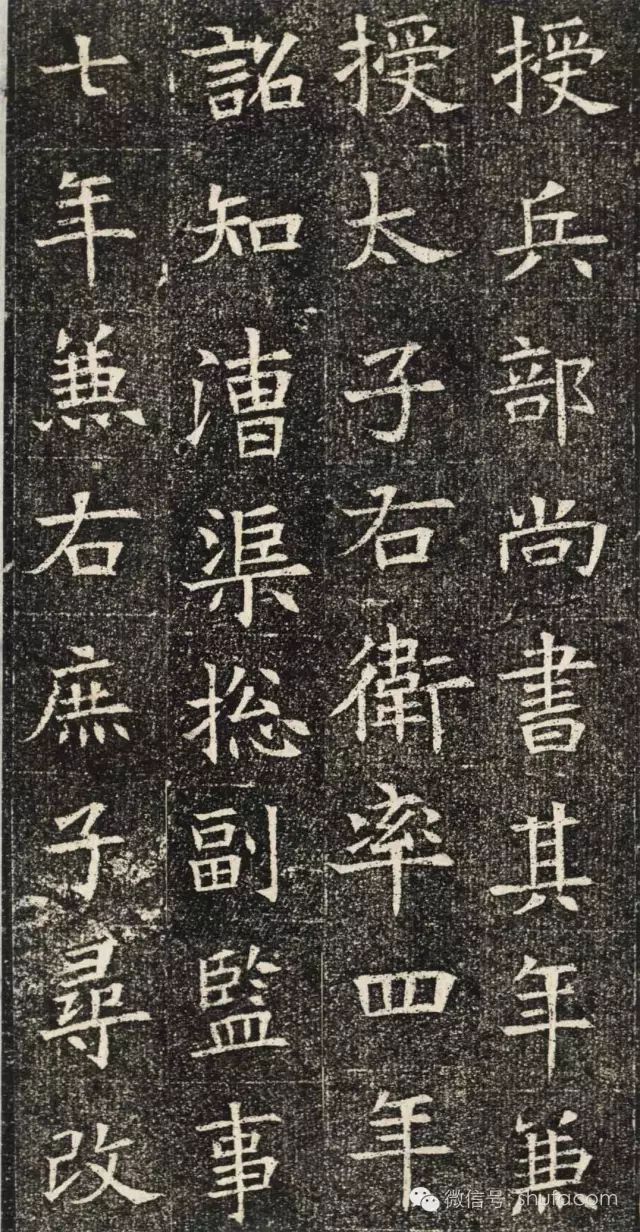 授兵部尚書其年兼
授太子右衛率四年
詔知漕渠捴副監事
七年兼右庶子尋改
微信号: shufacom